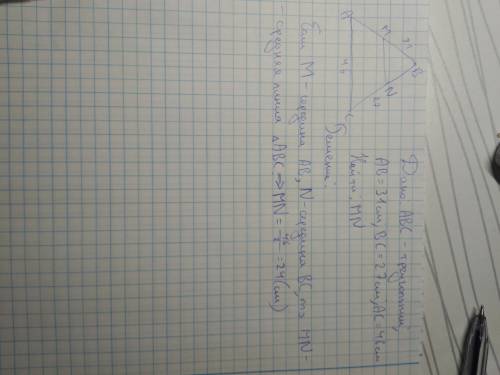 Дано: ABC - треугольник,
AB = 31 см, BC = 27 см, AC = 48 см
Найти: MN
A
M
31
B
N
27
C
48
Решение:
Если M - середина AB, N - середина BC, то MN -
- средняя линия △ABC ⇒ MN = 48/2 = 24 (см)